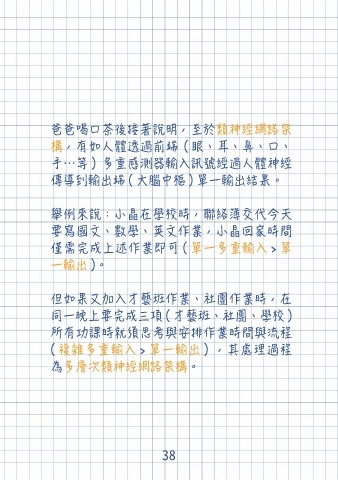 爸爸喝口茶後接著說明，至於類神經網路架
構，有如人體透過前端（眼、耳、鼻、口、
手…等）多重感測器輸入訊號經過人體神經
傳導到輸出端（大腦中樞）單一輸出結果。
舉例來說：小晶在學校時，聯絡簿交代今天
要寫國文、數學、英文作業，小晶回家時間
僅需完成上述作業即可（單一多重輸入 > 單
一輸出）。
但如果又加入才藝班作業、社團作業時，在
同一晚上要完成三項（才藝班、社團、學校）
所有功課時就須思考與安排作業時間與流程
（複雜多重輸入 > 單一輸出），其處理過程
為多層次類神經網路架構。
38